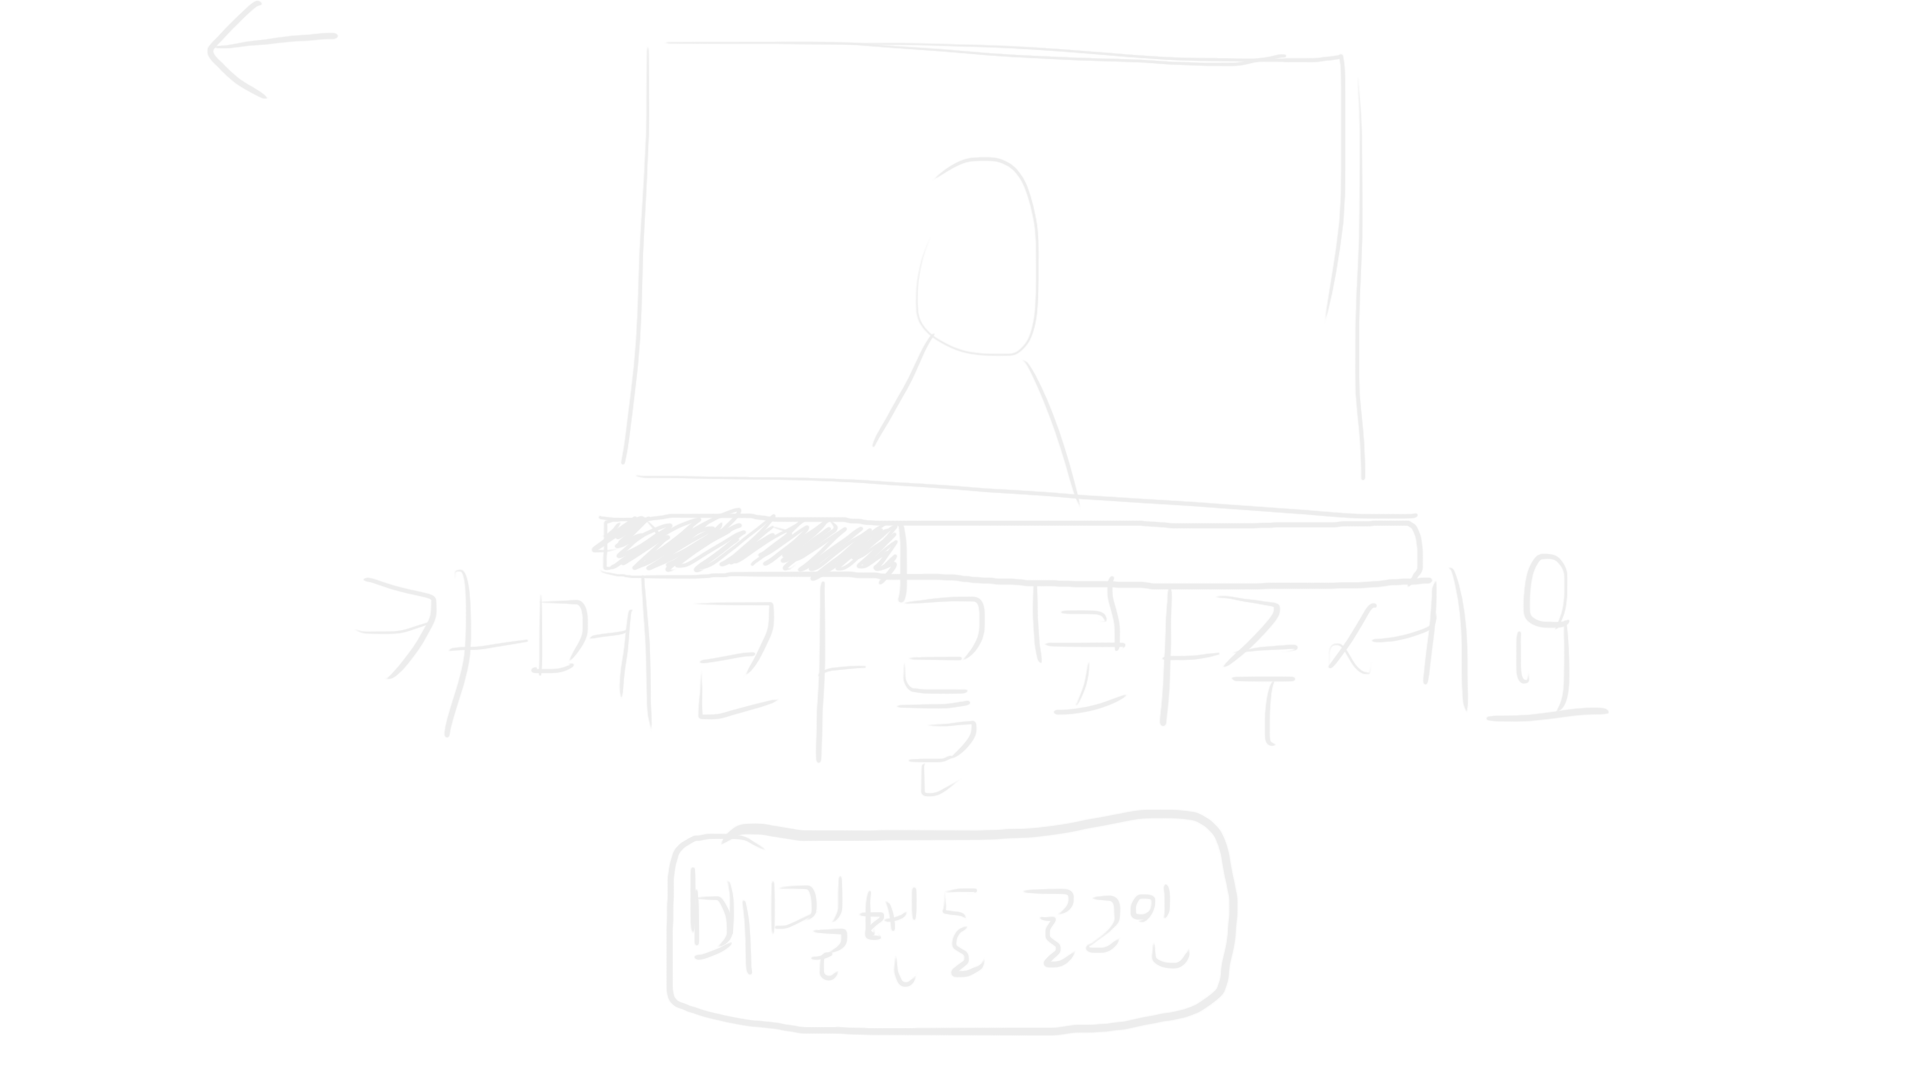 카메라를 봐주세요
비밀번호 로그인